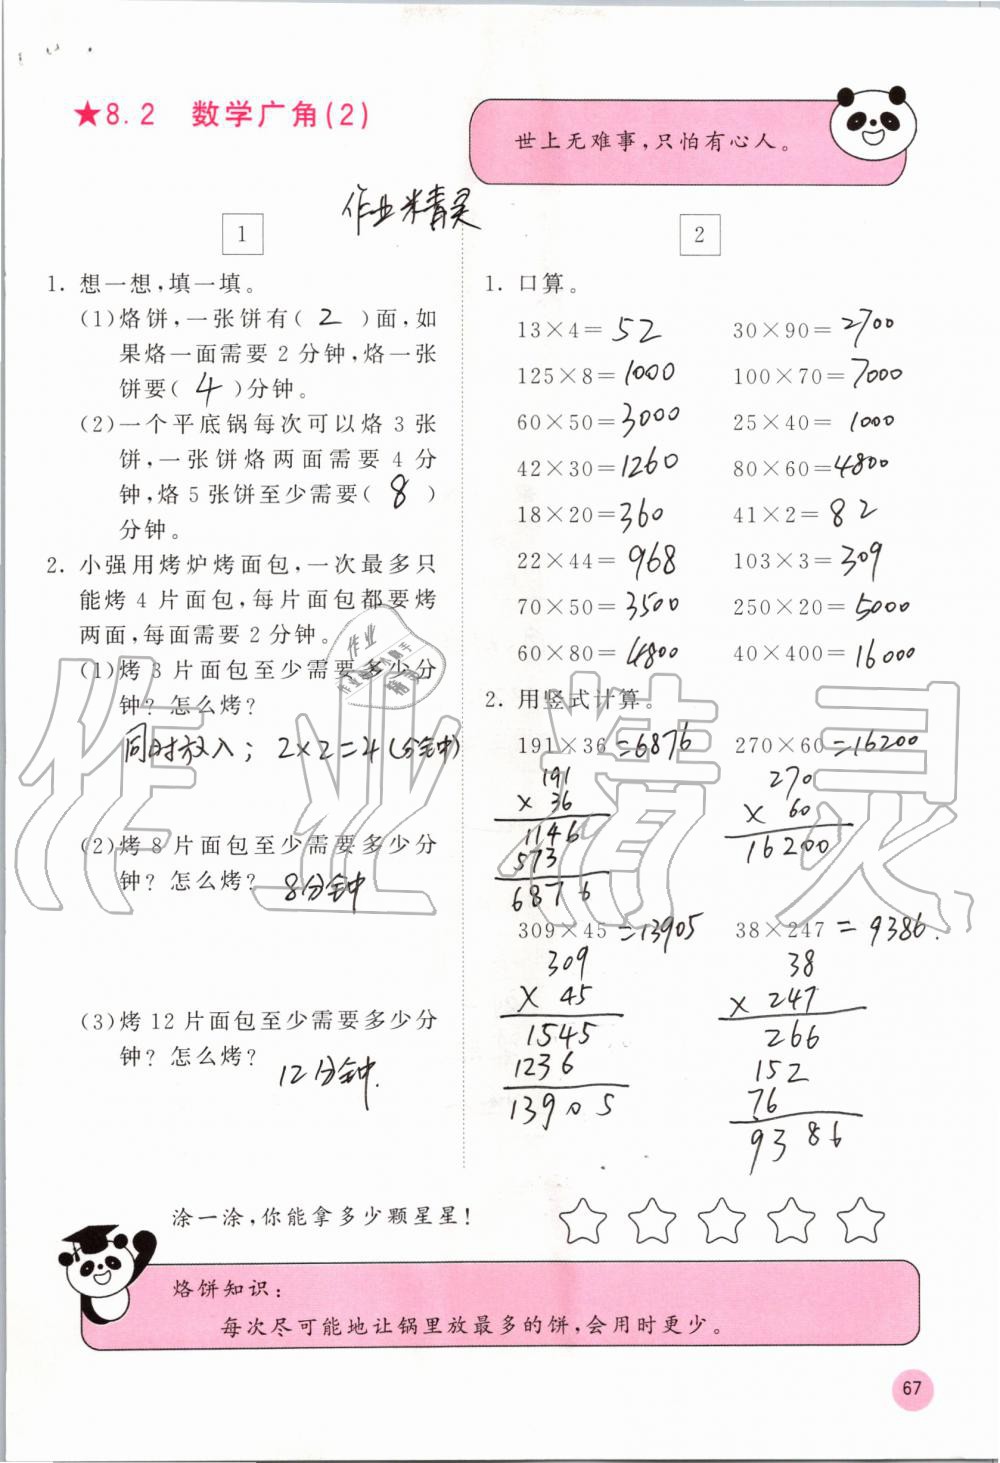 ★8.2 数学广角(2)
世上无难事,只怕有心人。
作业精灵
1
1. 想一想,填一填。
(1)烙饼,一张饼有( 2 )面,如
果烙一面需要 2 分钟,烙一张
饼要( 4 )分钟。
(2)一个平底锅每次可以烙 3 张
饼,一张饼烙两面需要 4 分
钟,烙 5 张饼至少需要( 8 )
分钟。
2. 小强用烤炉烤面包,一次最多只
能烤 4 片面包,每片面包都要烤
两面,每面需要 2 分钟。
(1)烤 3 片面包至少需要多少分
钟? 怎么烤?
同时放入; 2×2=4(分钟)
(2)烤 8 片面包至少需要多少分
钟? 怎么烤? 8分钟
(3)烤 12 片面包至少需要多少分
钟? 怎么烤? 12分钟.
2
1. 口算。
13×4=52 30×90=2700
125×8=1000 100×70=7000
60×50=3000 25×40=1000
42×30=1260 80×60=4800
18×20=360 41×2=82
22×44=968 103×3=309
70×50=3500 250×20=5000
60×80=4800 40×400=16000
2. 用竖式计算。
191×36=6876 270×60=16200
191 270
× 36 × 60
1146 16200
573
6876
309×45=13905 38×247=9386.
309 38
× 45 × 247
1545 266
1236 152
13905 76
9386
涂一涂,你能拿多少颗星星!
烙饼知识:
每次尽可能地让锅里放最多的饼,会用时更少。
67
作业精灵